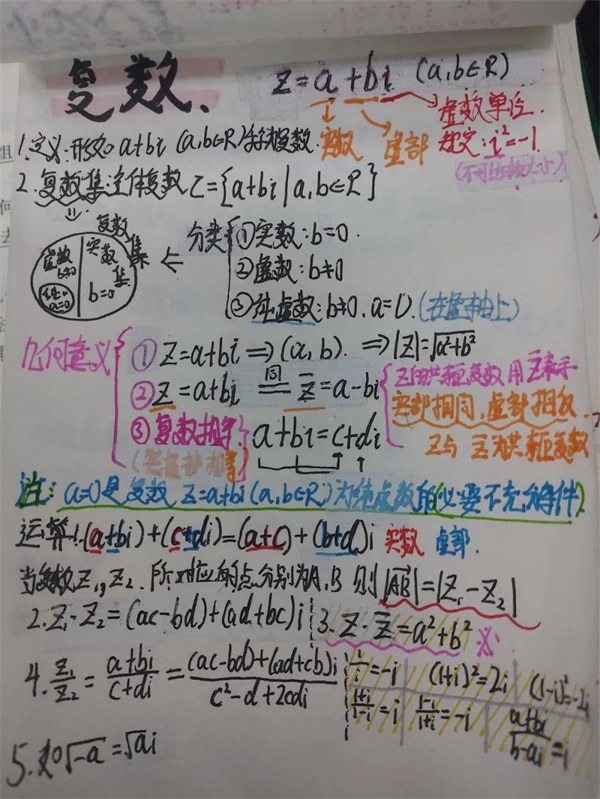 复数、
z=a+bi (a,b∈R)
实数 虚部 虚数单位
规定:i²=-1
(不可比较大小)
1.定义:形如a+bi (a,b∈R)
2.复数集:全体复数 C={a+bi|a,b∈R}
复数集
虚数 b≠0
实数集 b=0
a=0
分类
①实数:b=0
②虚数:b≠0
③纯虚数:b≠0,a=0 (在虚轴上)
几何意义
①z=a+bi⇒(a,b) ⇒|z|=√a²+b²
②z=a+bi 同= z̄=a-bi
z的共轭复数用z̄表示
实部相同,虚部相反
z与z̄为共轭复数
③复数相等 a+bi=c+di
(实虚部相等)
注: a=0是复数 z=a+bi(a,b∈R)为纯虚数的(必要不充分条件)
运算:1.(a+bi)+(c+di)=(a+c)+(b+d)i 实数 虚部
当复数z₁,z₂.所对应的点分别为A,B 则|AB|=|z₁-z₂|
2.z₁·z₂=(ac-bd)+(ad+bc)i
3.z·z̄=a²+b² ※
4.z₁/z₂=(a+bi)/(c+di)=((ac-bd)+(ad+cb)i)/(c²-d+2cdi)
1/i=-i (1+i)²=2i (1-i)²=-2i
(1+i)/(1-i)=i (1-i)/(1+i)=-i (a+bi)/(b-ai)=i
5. √-a=√ai